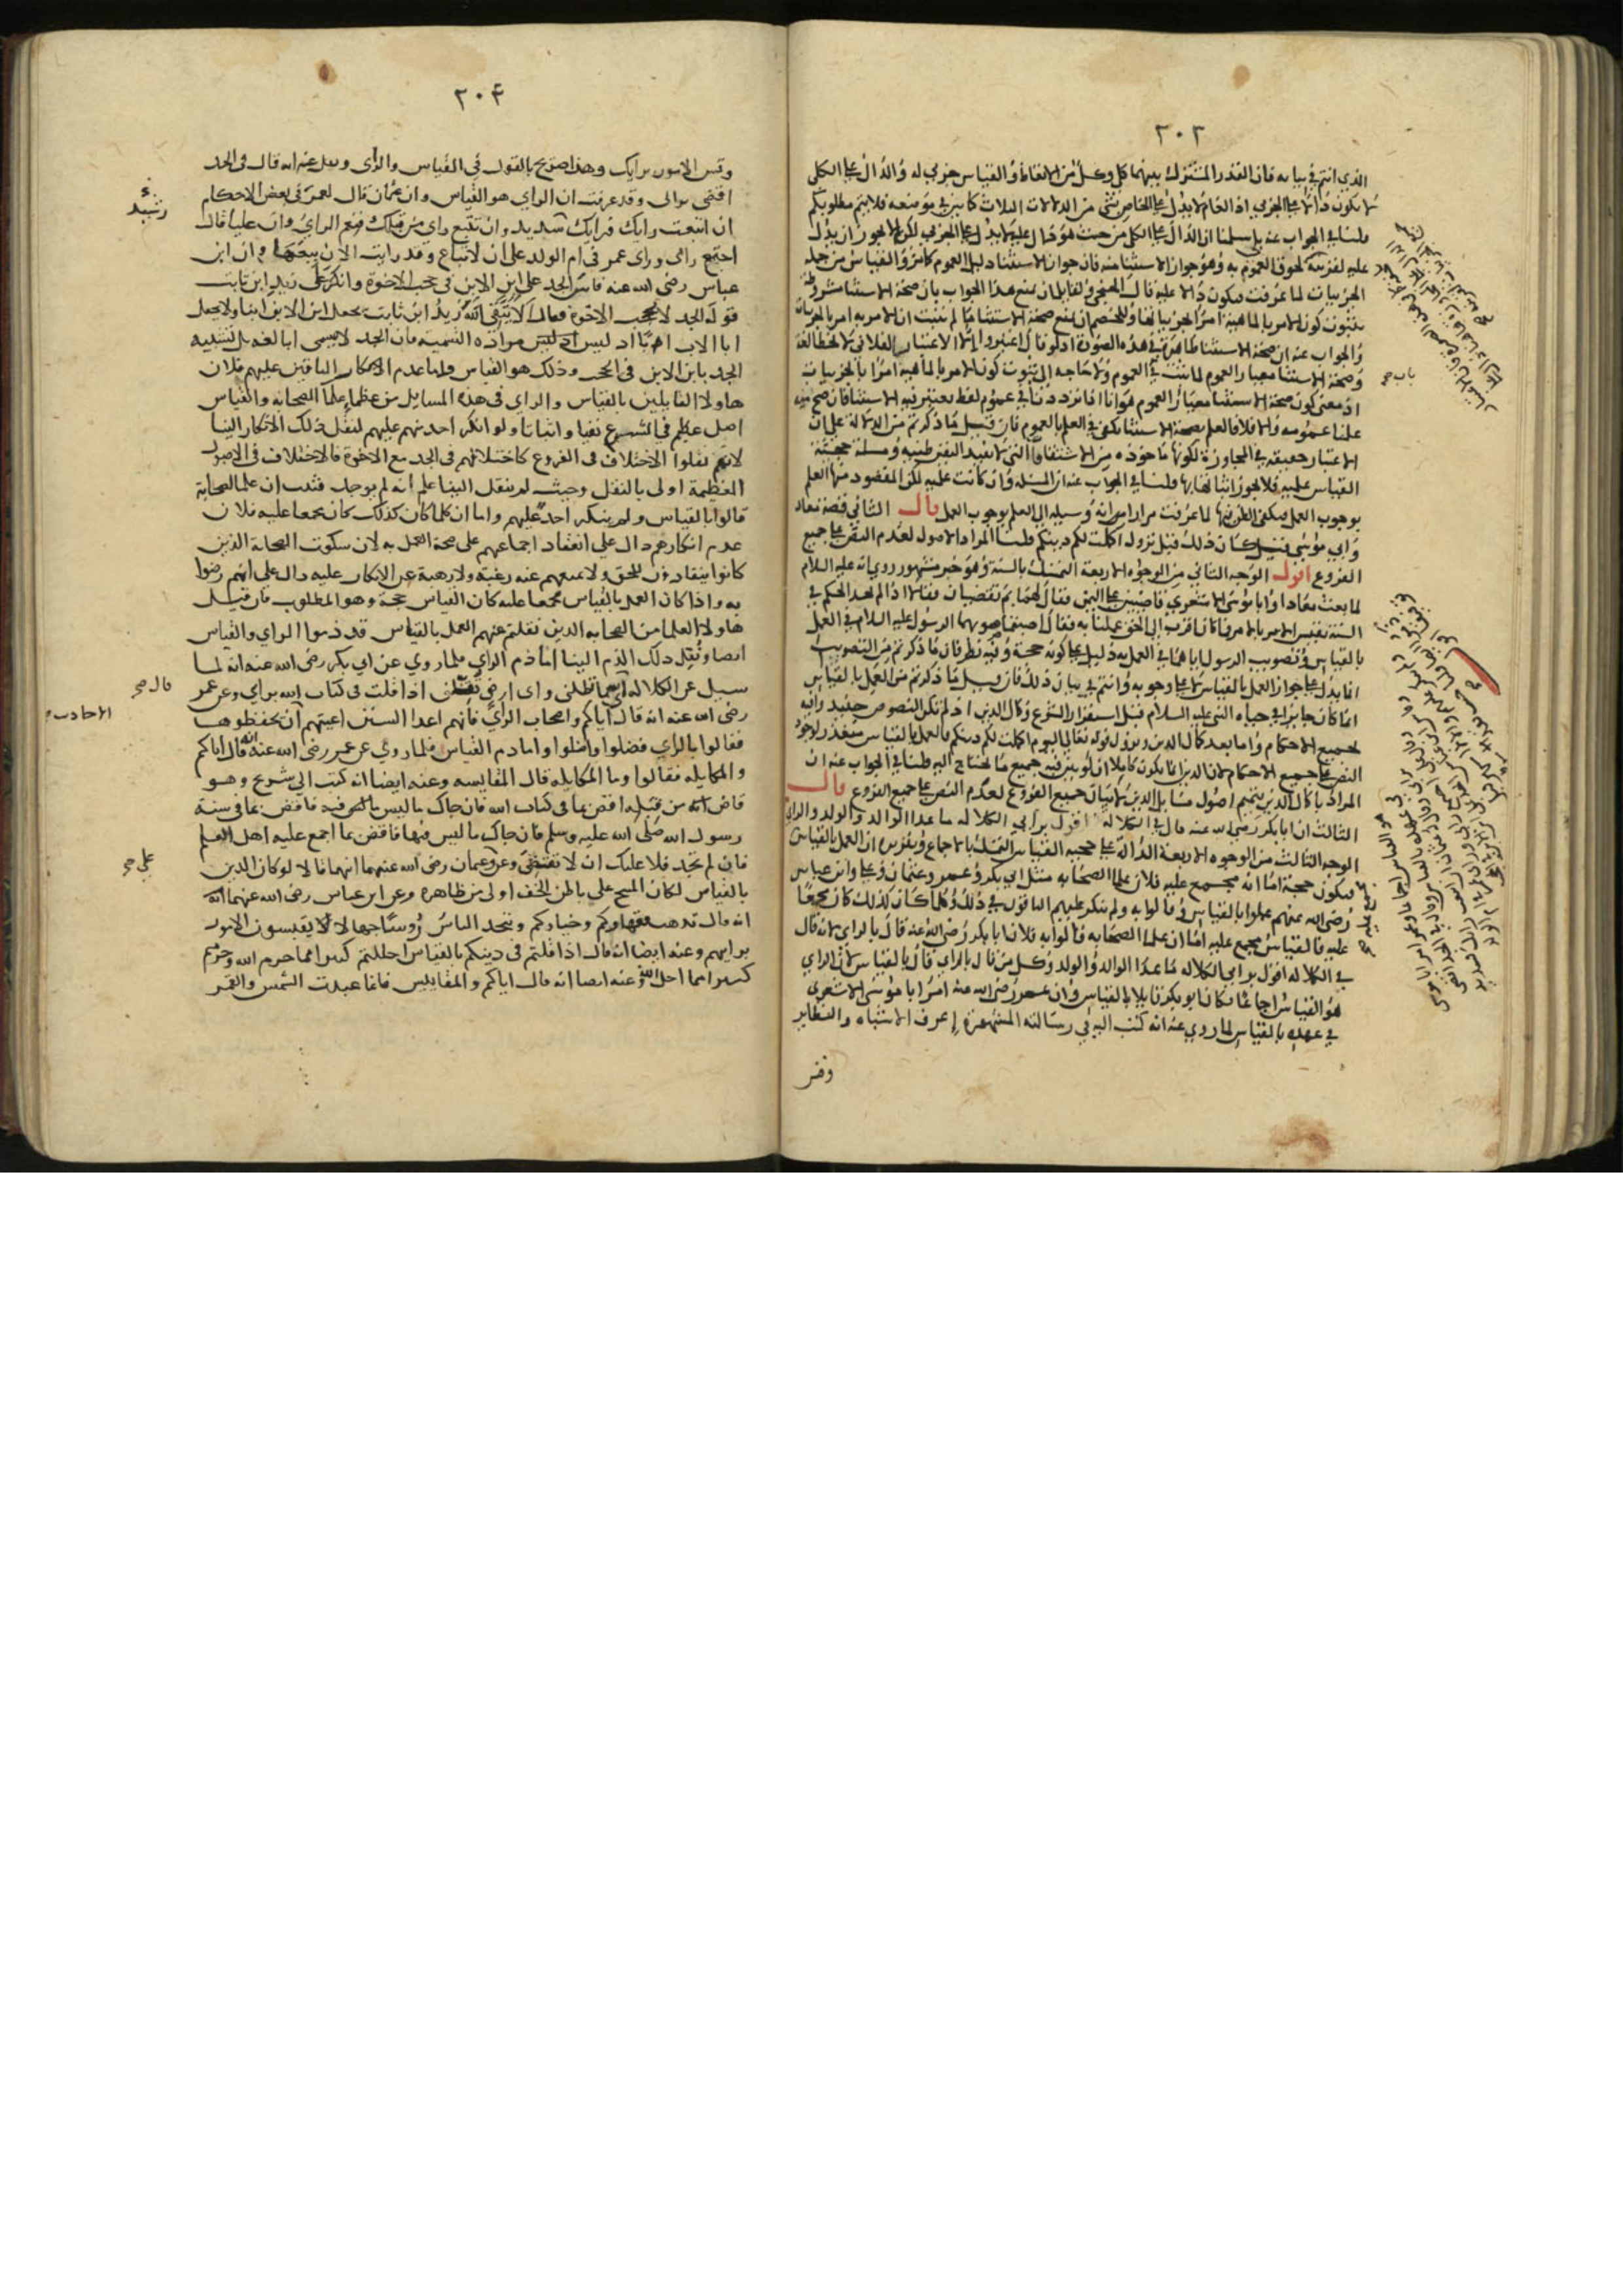 ٢٠٣
الذي انتم في بيانه فان القدر المشترك بينهما كلي وكل من الاتعاظ والقياس جزئي له والدال على الكلي
لا يكون دالا على الجزئي اذ العام لا يدل على الخاص بشيء من الدلالات الثلاث كما بين في موضعه فلا يتم مطلوبكم
قلنا في الجواب عنه بلى سلمنا ان الدال على الكلي من حيث هو دال عليه لا يدل على الجزئي لكن لا يجوز ان يدل
عليه لقرينة لحوق العموم به وهو جواز الاستثنا منه فان جواز الاستثنا دليل العموم كما مر والقياس من جملة
الجزئيات لما عرفت فيكون دالا عليه قال ولقايل ان يمنع هذا الجواب بان صحة الاستثنا مشروطة
بثبوت كون الامر بالماهية امرا بالجزئيات وللخصم ان يمنع صحة الاستثنا ما لم يثبت ان الامر به امر بالجزئيات
والجواب عنه ان صحة الاستثنا ظاهرة في هذه الصورة اذ لو قال اعتبروا الا الاعتبار الفلاني لا يخطا لغة
وصحة الاستثنا معيار العموم لما ثبت في العموم ولا حاجة الى ثبوت كون الامر بالماهية امرا بالجزئيات
اذ معنى كون صحة الاستثنا معيار العموم هو انا اذا ترددنا في عموم لفظ نعتبر فيه الاستثنا فان صح
علمنا عمومه والا فلا فالعلم بصحة الاستثنا يكفي في العلم بالعموم فان قيل ما ذكرتم من الدلالة على ان
الاعتبار حقيقة في المجاوزة لكونها ماخوذة من الاشتقاقات التي لا تفيد اليقين ظنية ومسئلة حجية
القياس علمية فلا يجوز اثباتها بها قلنا في الجواب عنه ان المسئلة وان كانت علمية لكن المقصود منها العلم
بوجوب العمل فيكفي الظن فيها لما عرفت مرارا من انه وسيلة الى العلم بوجوب العمل قال الثاني قصة معاذ
وابي موسى قيل كان ذلك قبل نزول اكملت لكم دينكم قلنا المراد الاصول لعدم النص على جميع
الفروع اقول الوجه الثاني من الوجوه الاربعة التمسك بالسنة وهو خبر مشهور روي انه عليه السلام
لما بعث معاذا وابا موسى الاشعري قاضيين على اليمن فقال لهما بم تقضيان فقالا اذا لم نجد الحكم في
السنة نقيس الامر بالامر فما كان اقرب الى الحق عملنا به فقال اصبتما صوبهما الرسول عليه السلام في العمل
بالقياس وتصويب الرسول اياهما في العمل به دليل على كونه حجة وفيه نظر فان ما ذكرتم من التصويب
انما يدل على جواز العمل بالقياس لا على وجوبه وانتم في بيان ذلك فان قيل ما ذكرتم من العمل بالقياس
انما كان جايزا في حياة النبي عليه السلام قبل استقرار الشرع وكمال الدين اذ لم تكن النصوص حينئذ وافية
لجميع الاحكام واما بعد كمال الدين ونزول قوله تعالى اليوم اكملت لكم دينكم فالعمل بالقياس متعذر لوجود
النص على جميع الاحكام لان الدين انما يكون كاملا ان لو بين فيه جميع ما يحتاج اليه قلنا في الجواب عنه ان
المراد باكمال الدين تتميم اصول مسايل الدين لا بيان جميع الفروع لعدم النص على جميع الفروع قال
الثالث ان ابا بكر رضي الله عنه قال في الكلالة اقول برايي الكلالة ما عدا الوالد والولد والراي
الوجه الثالث من الوجوه الاربعة الدالة على حجية القياس التمسك بالاجماع وتقريره ان العمل بالقياس
فيكون حجة اما انه مجمع عليه فلان علما الصحابة مثل ابي بكر وعمر وعثمان وعلي وابن عباس
رضي الله عنهم عملوا بالقياس وقالوا به ولم ينكر عليهم الباقون في ذلك وكلما كان كذلك كان مجمعا
عليه فالقياس مجمع عليه اما ان علما الصحابة قالوا به فلان ابا بكر رضي الله عنه قال بالراي لانه قال
في الكلالة اقول برايي الكلالة ما عدا الوالد والولد وكل من قال بالراي قال بالقياس لان الراي
هو القياس اجماعا فكان ابو بكر قايلا بالقياس وان عمر رضي الله عنه امر ابا موسى الاشعري
في عهده بالقياس لما روي عنه انه كتب اليه في رسالته المشهورة اعرف الاشباه والنظاير
وقس
باب صح
مجمع عليه صح
٢٠٤
وقس الامور برايك وهذا صريح بالقول في القياس والراي ونقل عنه انه قال في الجد
اقضي برايي وقد عرفت ان الراي هو القياس وان عثمان قال لعمر في بعض الاحكام
ان اتبعت رايك فرايك سديد وان تتبع راي من قبلك فنعم الراي وان عليا قال
اجتمع رايي وراي عمر في ام الولد على ان لا تباع وقد رايت الان بيعها وان ابن
عباس رضي الله عنه قاس الجد على ابن الابن في حجب الاخوة وانكر على زيد ابن ثابت
قوله الجد لا يحجب الاخوة فقال الا يتقي الله زيد ابن ثابت يجعل ابن الابن ابنا ولا يجعل
ابا الاب ابا اذ ليس مراده التسمية فان الجد لا يسمى ابا لغة بل تشبيه
الجد بابن الابن في الحجب وذلك هو القياس واما عدم الانكار الباقين عليهم فلان
هاولا القايلين بالقياس والراي في هذه المسايل من عظما علما الصحابة والقياس
اصل عظيم في الشرع نفيا واثباتا ولو انكر احد منهم عليهم لنقل ذلك الانكار الينا
لانهم نقلوا الاختلاف في الفروع كاختلافهم في الجد مع الاخوة فالاختلاف في الاصول
العظيمة اولى بالنقل وحيث لم ينقل الينا علم انه لم يوجد فثبت ان علما الصحابة
قالوا بالقياس ولم ينكر احد عليهم واما ان كلما كان كذلك كان مجمعا عليه فلان
عدم انكارهم دال على انعقاد اجماعهم على صحة العمل به لان سكوت الصحابة الذين
كانوا ينقادون للحق ولا يمنعهم عنه رغبة ولا رهبة عن الانكار عليه دال على انهم رضوا
به واذا كان العمل بالقياس مجمعا عليه كان القياس حجة وهو المطلوب فان قيل
هاولا العلما من الصحابة الذين نقلتم عنهم العمل بالقياس قد ذموا الراي والقياس
ايضا ونقل ذلك الذم الينا اما ذم الراي فلما روي عن ابي بكر رضي الله عنه انه لما
سيل عن الكلالة اي سما تظلني واي ارض تقلني اذا قلت في كتاب الله برايي وعن عمر
رضي الله عنه انه قال اياكم واصحاب الراي فانهم اعدا السنن اعيتهم ان يحفظوها
فقالوا بالراي فضلوا واضلوا واما ذم القياس فلما روي عن عمر رضي الله عنه انه قال اياكم
والمكايلة فقالوا وما المكايلة قال المقايسة وعنه ايضا انه كتب الى شريح وهو
قاض من قبله اقض بما في كتاب الله فان جاك ما ليس فيه فاقض بما في سنة
رسول الله صلى الله عليه وسلم فان جاك ما ليس فيها فاقض بما اجمع عليه اهل العلم
فان لم تجد فلا عليك ان لا تقضي وعن وعثمان رضي الله عنهما انهما قالا لو كان الدين
بالقياس لكان المسح على باطن الخف اولى من ظاهره وعن ابن عباس رضي الله عنهما
انه قال تذهب فقهاوكم وخياركم ويتخذ الناس روسا جهالا يقيسون الامور
برايهم وعنه ايضا انه قال اذا قلتم في دينكم بالقياس احللتم كثيرا مما حرم الله وحرمتم
كثيرا مما احل الله وعنه ايضا انه قال اياكم والمقاييس فانما عبدت الشمس والقمر
رشيد
قال صح
الاحاديث
علي صح